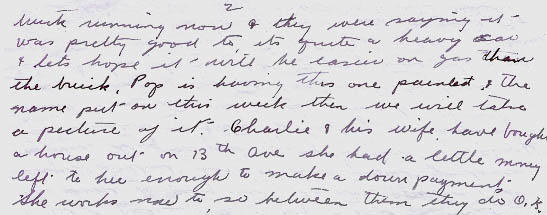 2
buick running now & they were saying it
was pretty good to, its quite a heavy car
& lets hope it will be easier on gas than
the buick. Pop is having this one painted & the
name put on this week then we will take
a picture of it. Charlie & his wife have bough
a house out on 13th Ave she had a little money
left to her enough to make a down payment
She works now to, so between them they do O.K.